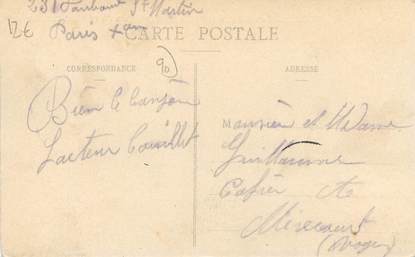 231 Faubourg St Martin
12€ Paris Xeme
CARTE POSTALE
90
CORRESPONDANCE
ADRESSE
Bien le bonjour
facteur
Monsieur et Madame
Guillaume
Cafier
Mirecourt
(Vosges)